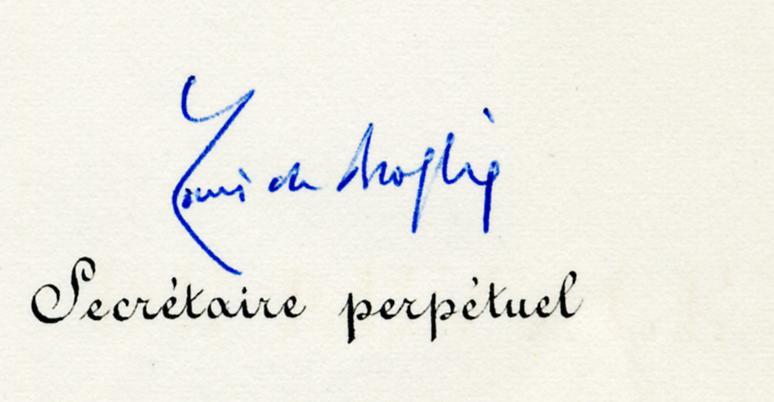 Louis de Broglie
Secrétaire perpétuel